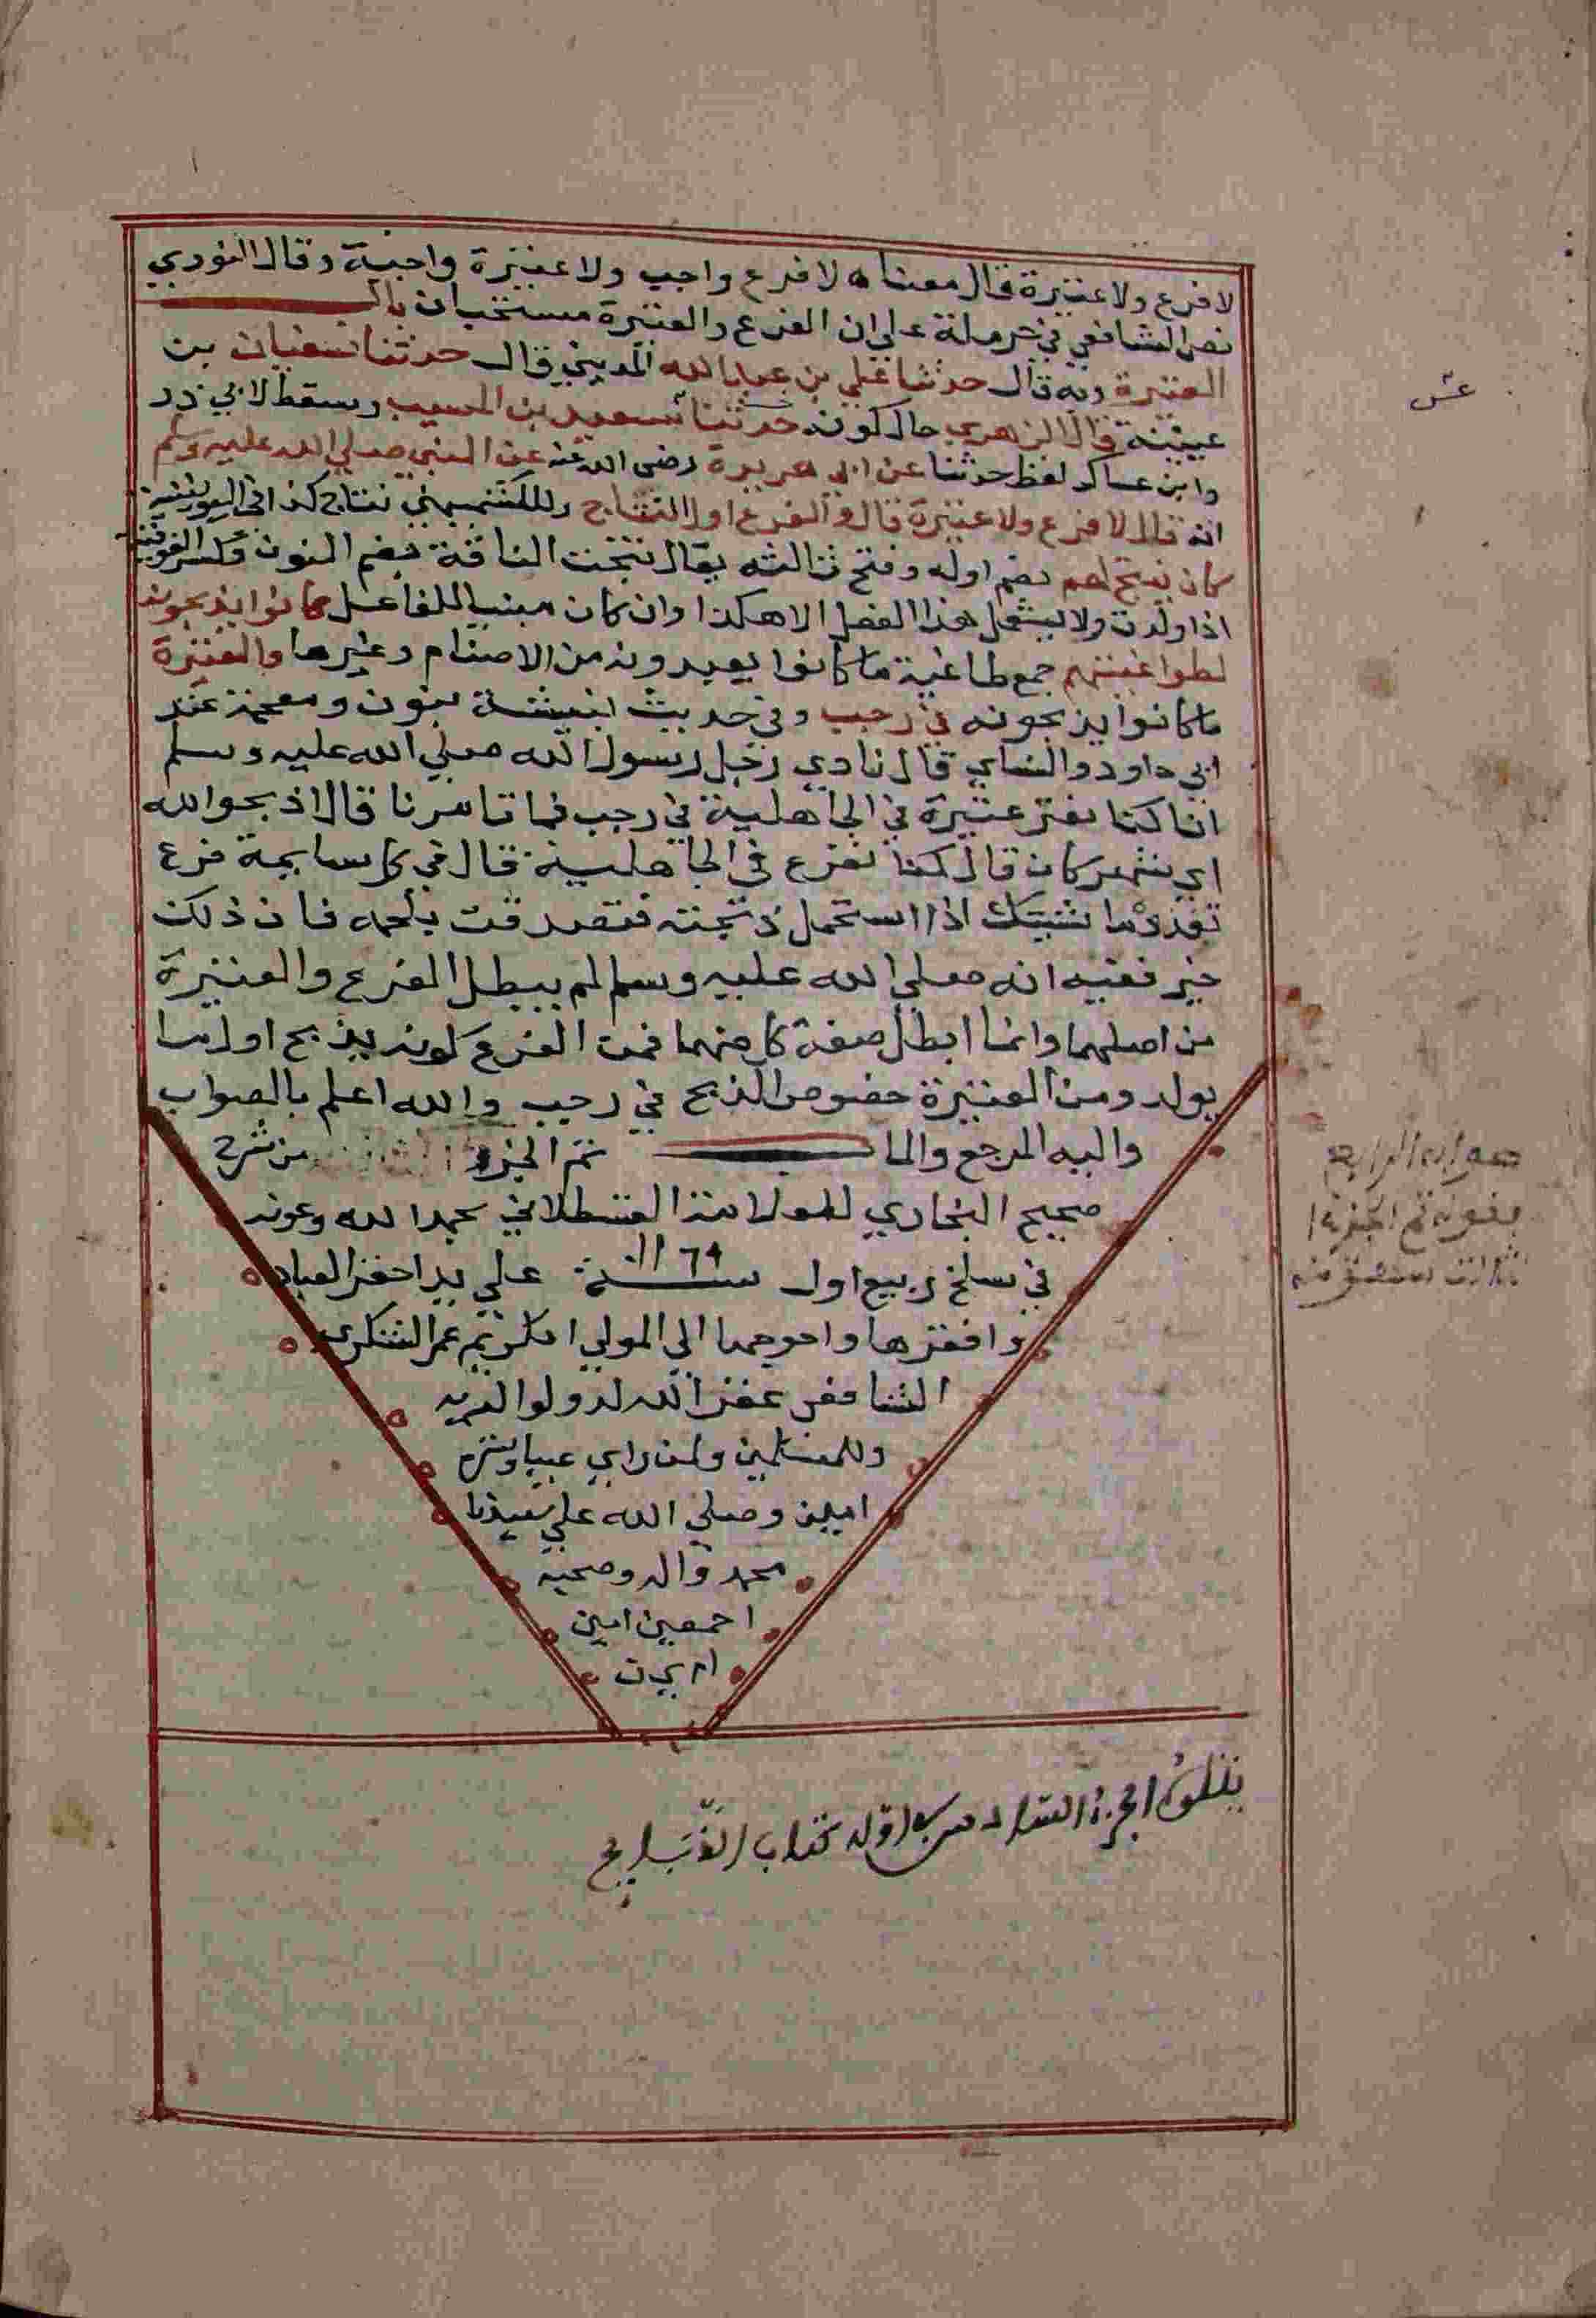 لا فرع ولا عتيرة قال معناه لا فرع واجب ولا عتيرة واجبة وقال النووي
نص الشافعي في حرملة على ان الفرع والعتيرة مستحبان باب
العتيرة وبه قال حدثنا علي بن عبد الله المديني قال حدثنا سفيان بن
عيينة قال الزهري حال كونه حدثنا سعيد بن المسيب وسقط لابي ذر
وابن عساكر لفظ حدثنا عن ابي هريرة رضى الله عنه عن النبي صلى الله عليه وسلم
انه قال لا فرع ولا عتيرة قال والفرع اول النتاج وللكشميهني نتاج كذا في اليونينية
كان ينتج لهم بضم اوله وفتح ثالثه يقال نتجت الناقة بضم النون وكسر الفوقية
اذا ولدت ولا يستعمل هذا الفعل الا هكذا وان كان مبنيا للفاعل كانوا يذبحونه
لطواغيتهم جمع طاغية ما كانوا يعبدونه من الاصنام وغيرها والعتيرة
ما كانوا يذبحونه في رجب وفي حديث نبيشة بنون ومعجمة عند
ابي داود والنساي قال نادي رجل رسول الله صلي الله عليه وسلم
انا كنا نعتر عتيرة في الجاهلية في رجب فما تامرنا قال اذبحوا لله
اي شهر كان قال كنا نفرع في الجاهلية قال في كل سايمة فرع
تغذوه ماشيتك اذا استحمل ذبحته فتصدقت بلحمه فان ذلك
خير ففيه انه صلي الله عليه وسلم لم يبطل الفرع والعتيرة
من اصلهما وانما ابطل صفة كل منهما فمن الفرع كونه يذبح اول ما
يولد ومن العتيرة خصوص الذبح في رجب والله اعلم بالصواب
واليه المرجع والماب تم الجزء من شرح
صحيح البخاري للمولانا القسطلاني بحمد الله وعونه
في سلخ ربيع اول سنة ١١٦٩ علي يد احقر العباد
وافقرها واحوجها الي المولي الكريم عمر
الشافعي غفر الله له ولوالديه
وللمسلمين ولمن راي عيبا وستره
امين وصلي الله علي سيدنا
محمد واله وصحبه
اجمعين امين
امين
يتلوه الجزء السادس اوله كتاب الذبايح
صوابه الرابع
بقوله تم الجزء